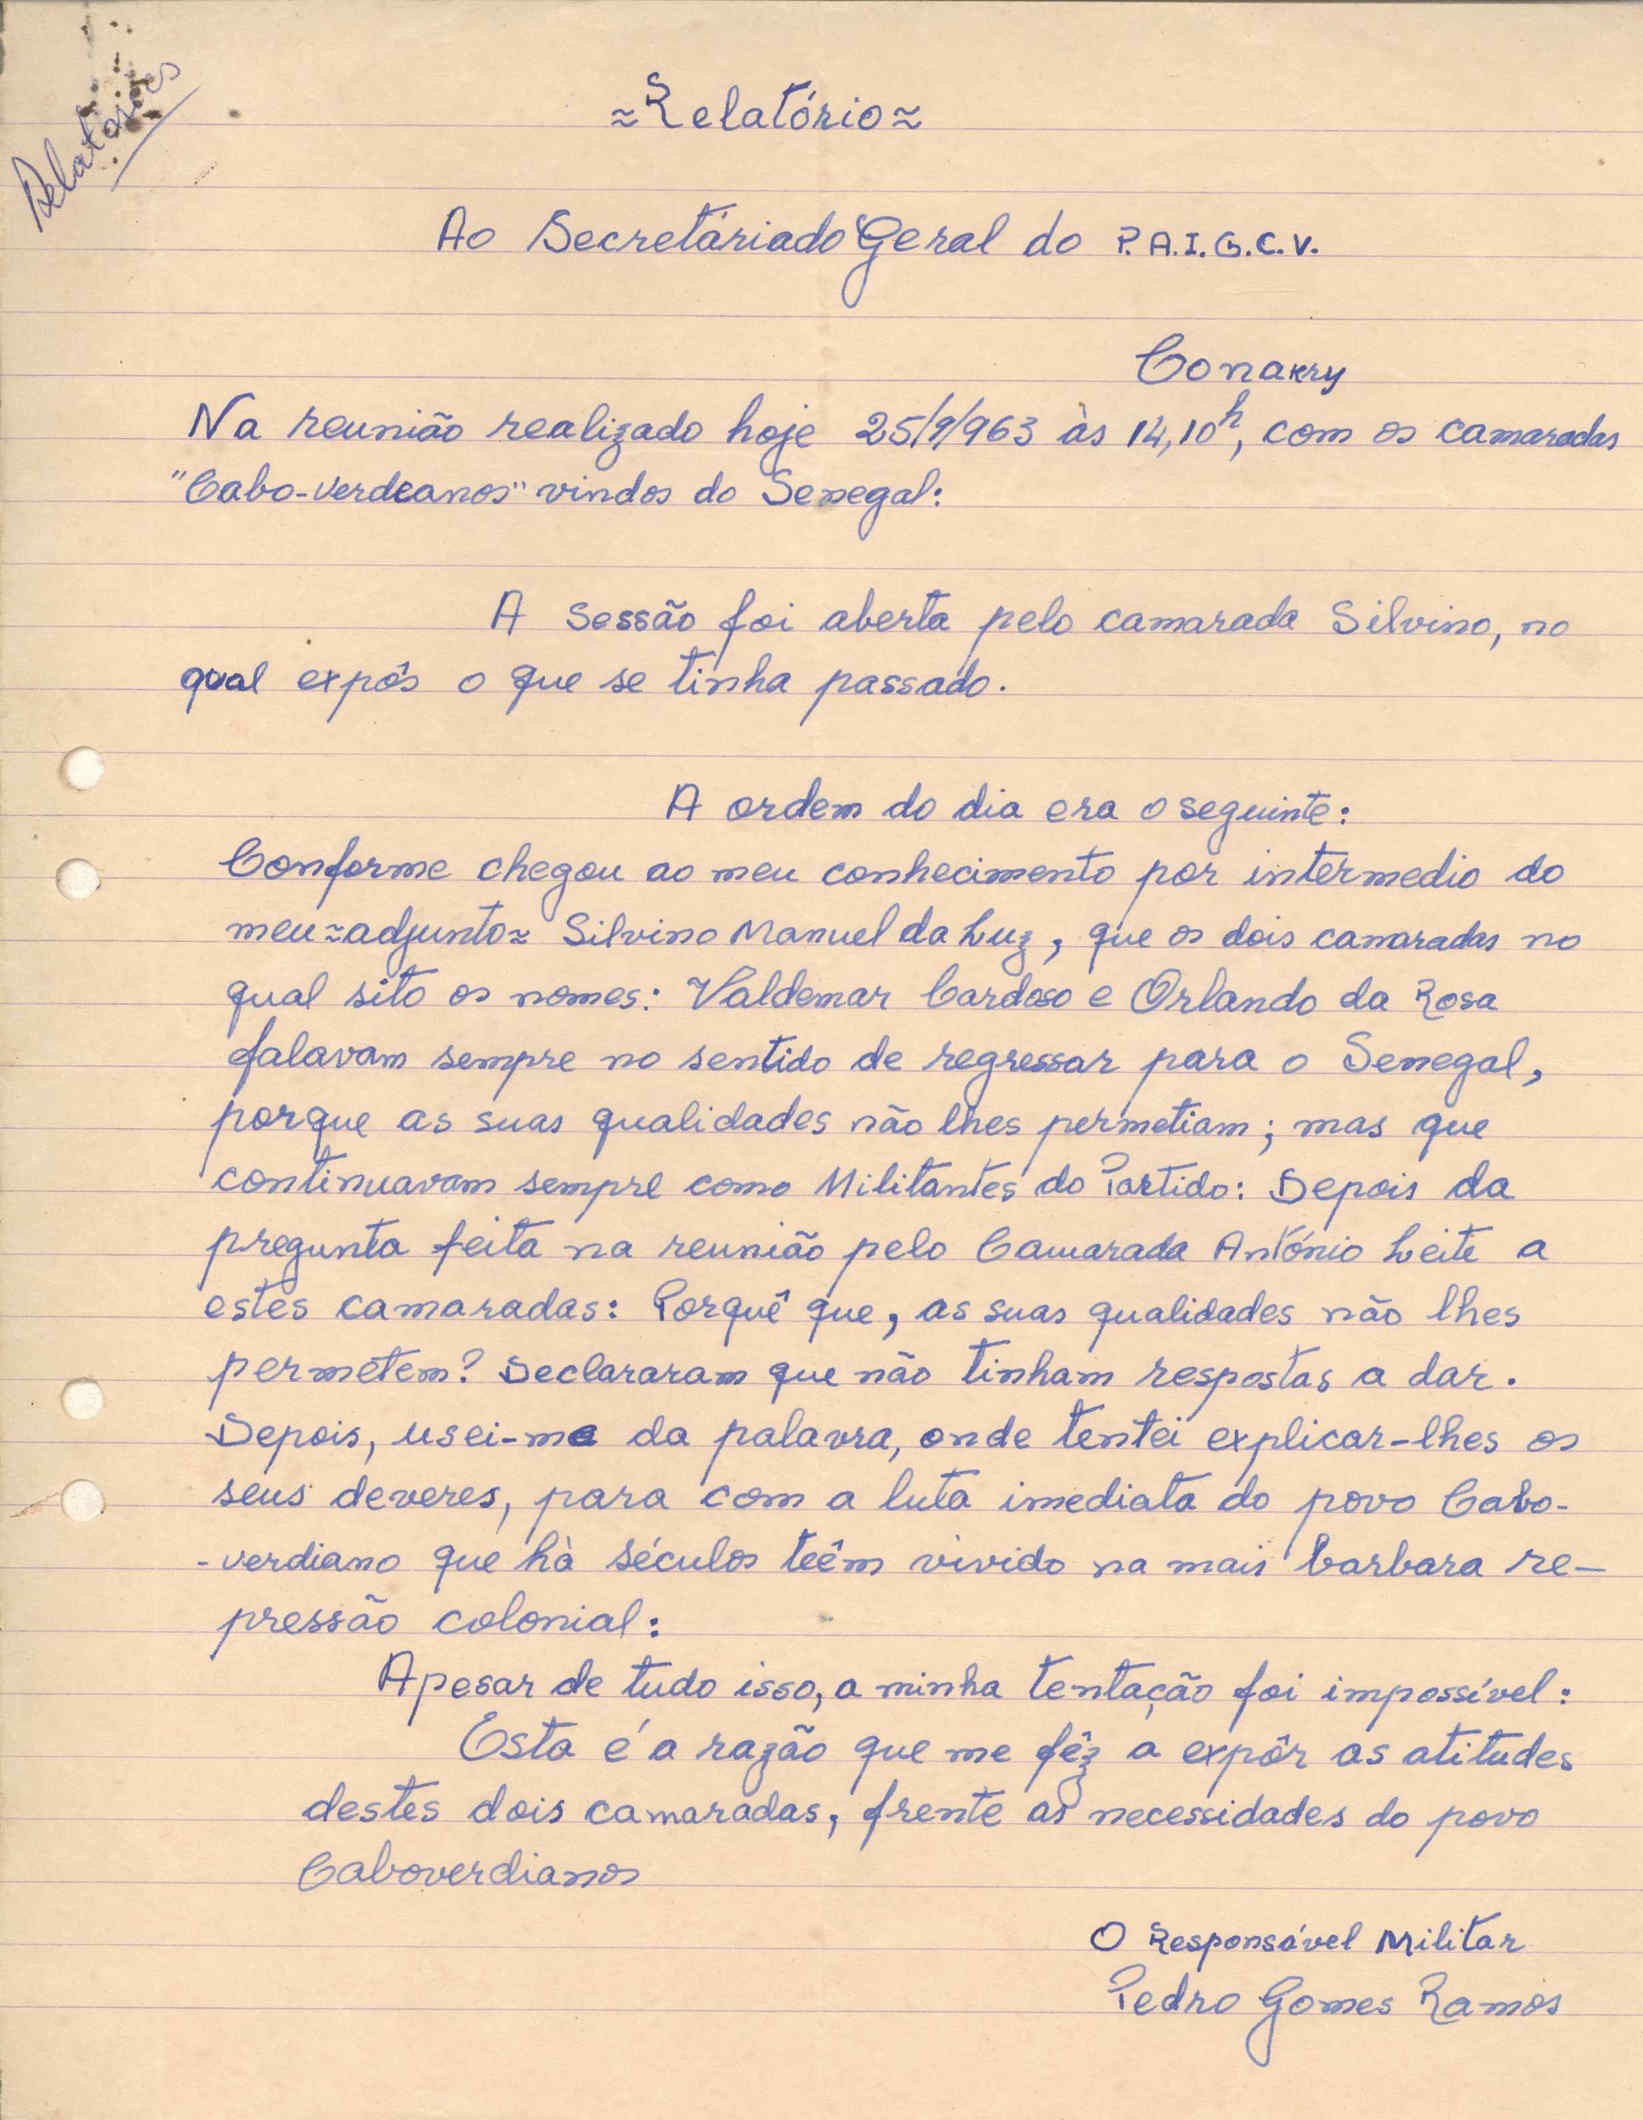 Relatórios
≈Relatório≈
Ao Secretáriado Geral do P.A.I.G.C.V.
Conakry
Na reunião realizado hoje 25/9/963 às 14,10h, com os camaradas
"Cabo-verdeanos" vindos do Senegal:
A sessão foi aberta pelo camarada Silvino, no
qual expôs o que se tinha passado.
A ordem do dia era o seguinte:
Conforme chegou ao meu conhecimento por intermedio do
meu≈adjunto≈ Silvino Manuel da Luz, que os dois camaradas no
qual sito os nomes: Valdemar Cardoso e Orlando da Rosa
falavam sempre no sentido de regressar para o Senegal,
porque as suas qualidades não lhes permetiam; mas que
continuavam sempre como Militantes do Partido: Depois da
pregunta feita na reunião pelo Camarada António Leite a
estes camaradas: Porquê que, as suas qualidades não lhes
permetem? Declararam que não tinham respostas a dar.
Depois, usei-me da palavra, onde tentei explicar-lhes os
seus deveres, para com a luta imediata do povo Cabo-
-verdiano que hà séculos teêm vivido na mais barbara re-
pressão colonial:
Apesar de tudo isso, a minha tentação foi impossível:
Esta é a razão que me fêz a expôr as atitudes
destes dois camaradas, frente as necessidades do povo
Caboverdianos
O Responsável Militar
Pedro Gomes Ramos